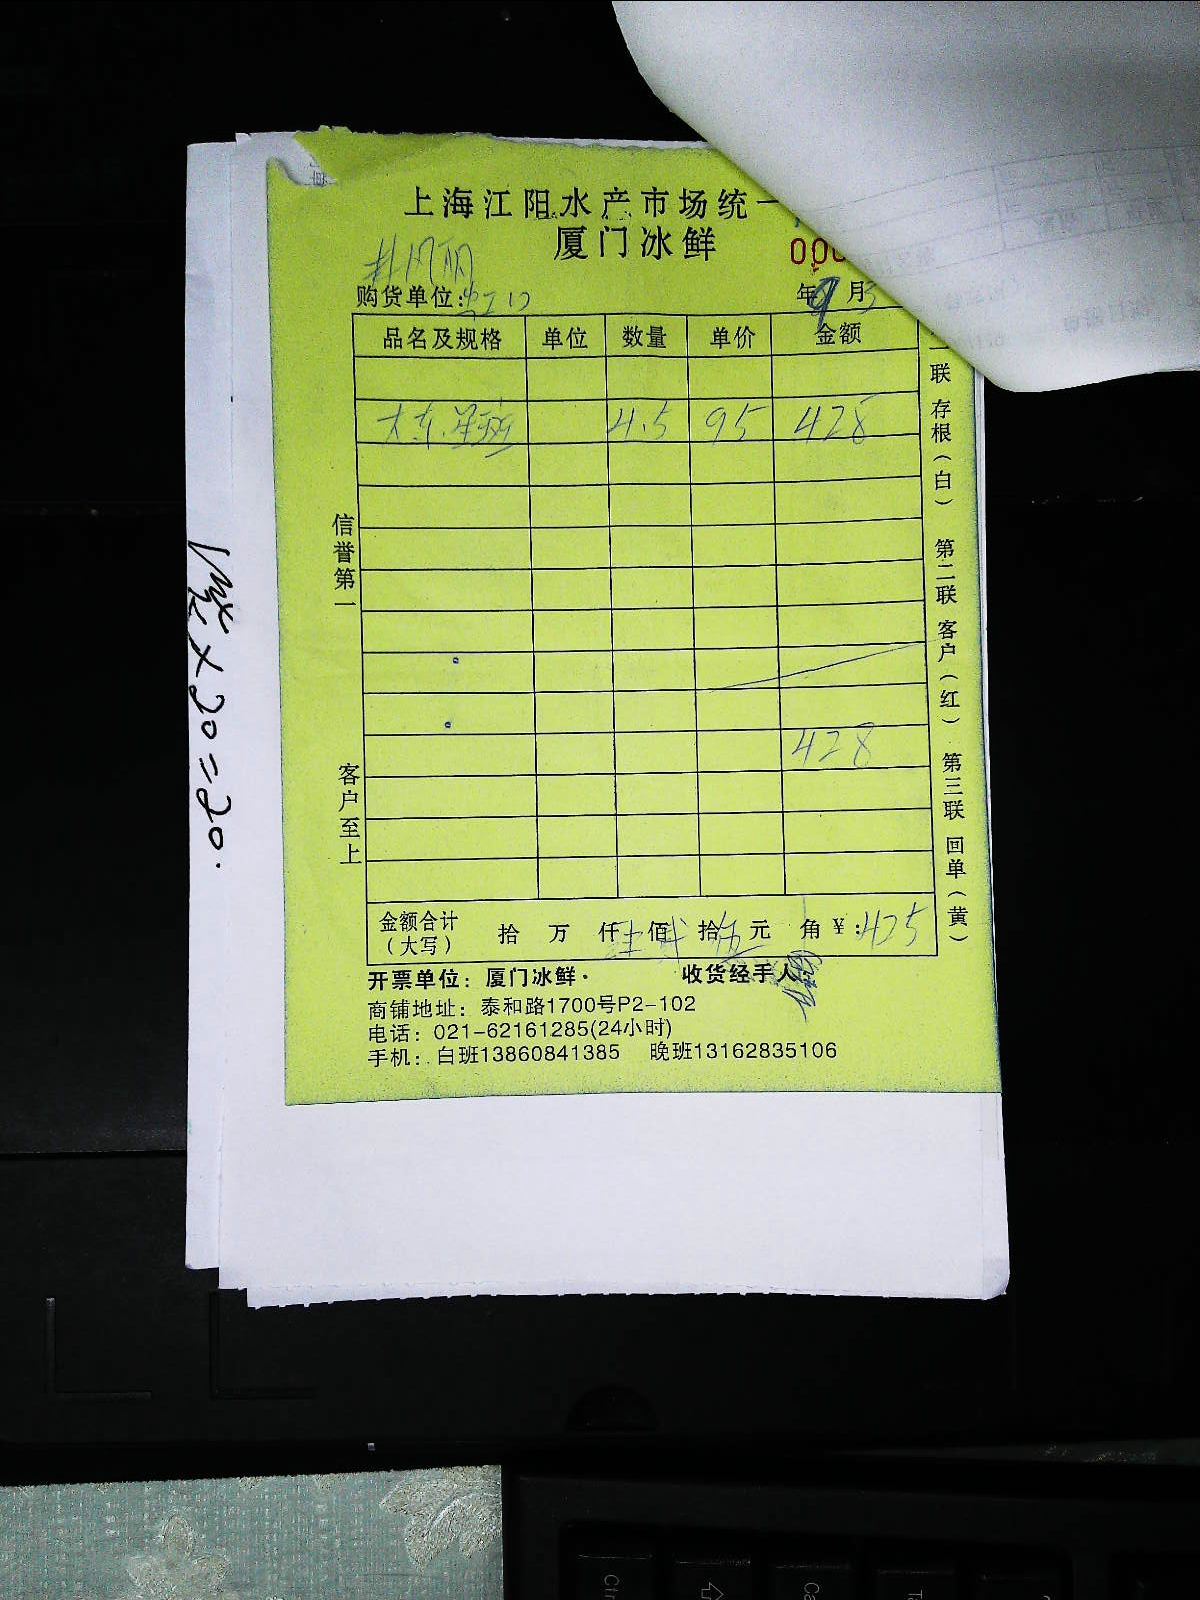 上海江阳水产市场统一
厦门冰鲜
000
购货单位:虹口
年9月3
品名及规格 单位 数量 单价 金额
大东星斑 4.5 95 428
428
金额合计(大写) 拾 万 仟 肆佰 贰拾 伍元 角 ¥:425
开票单位:厦门冰鲜·
收货经手人
商铺地址:泰和路1700号P2-102
电话:021-62161285(24小时)
手机:白班13860841385 晚班13162835106
信誉第一
客户至上
一联 存根(白) 第二联 客户(红) 第三联 回单(黄)
×20=20.